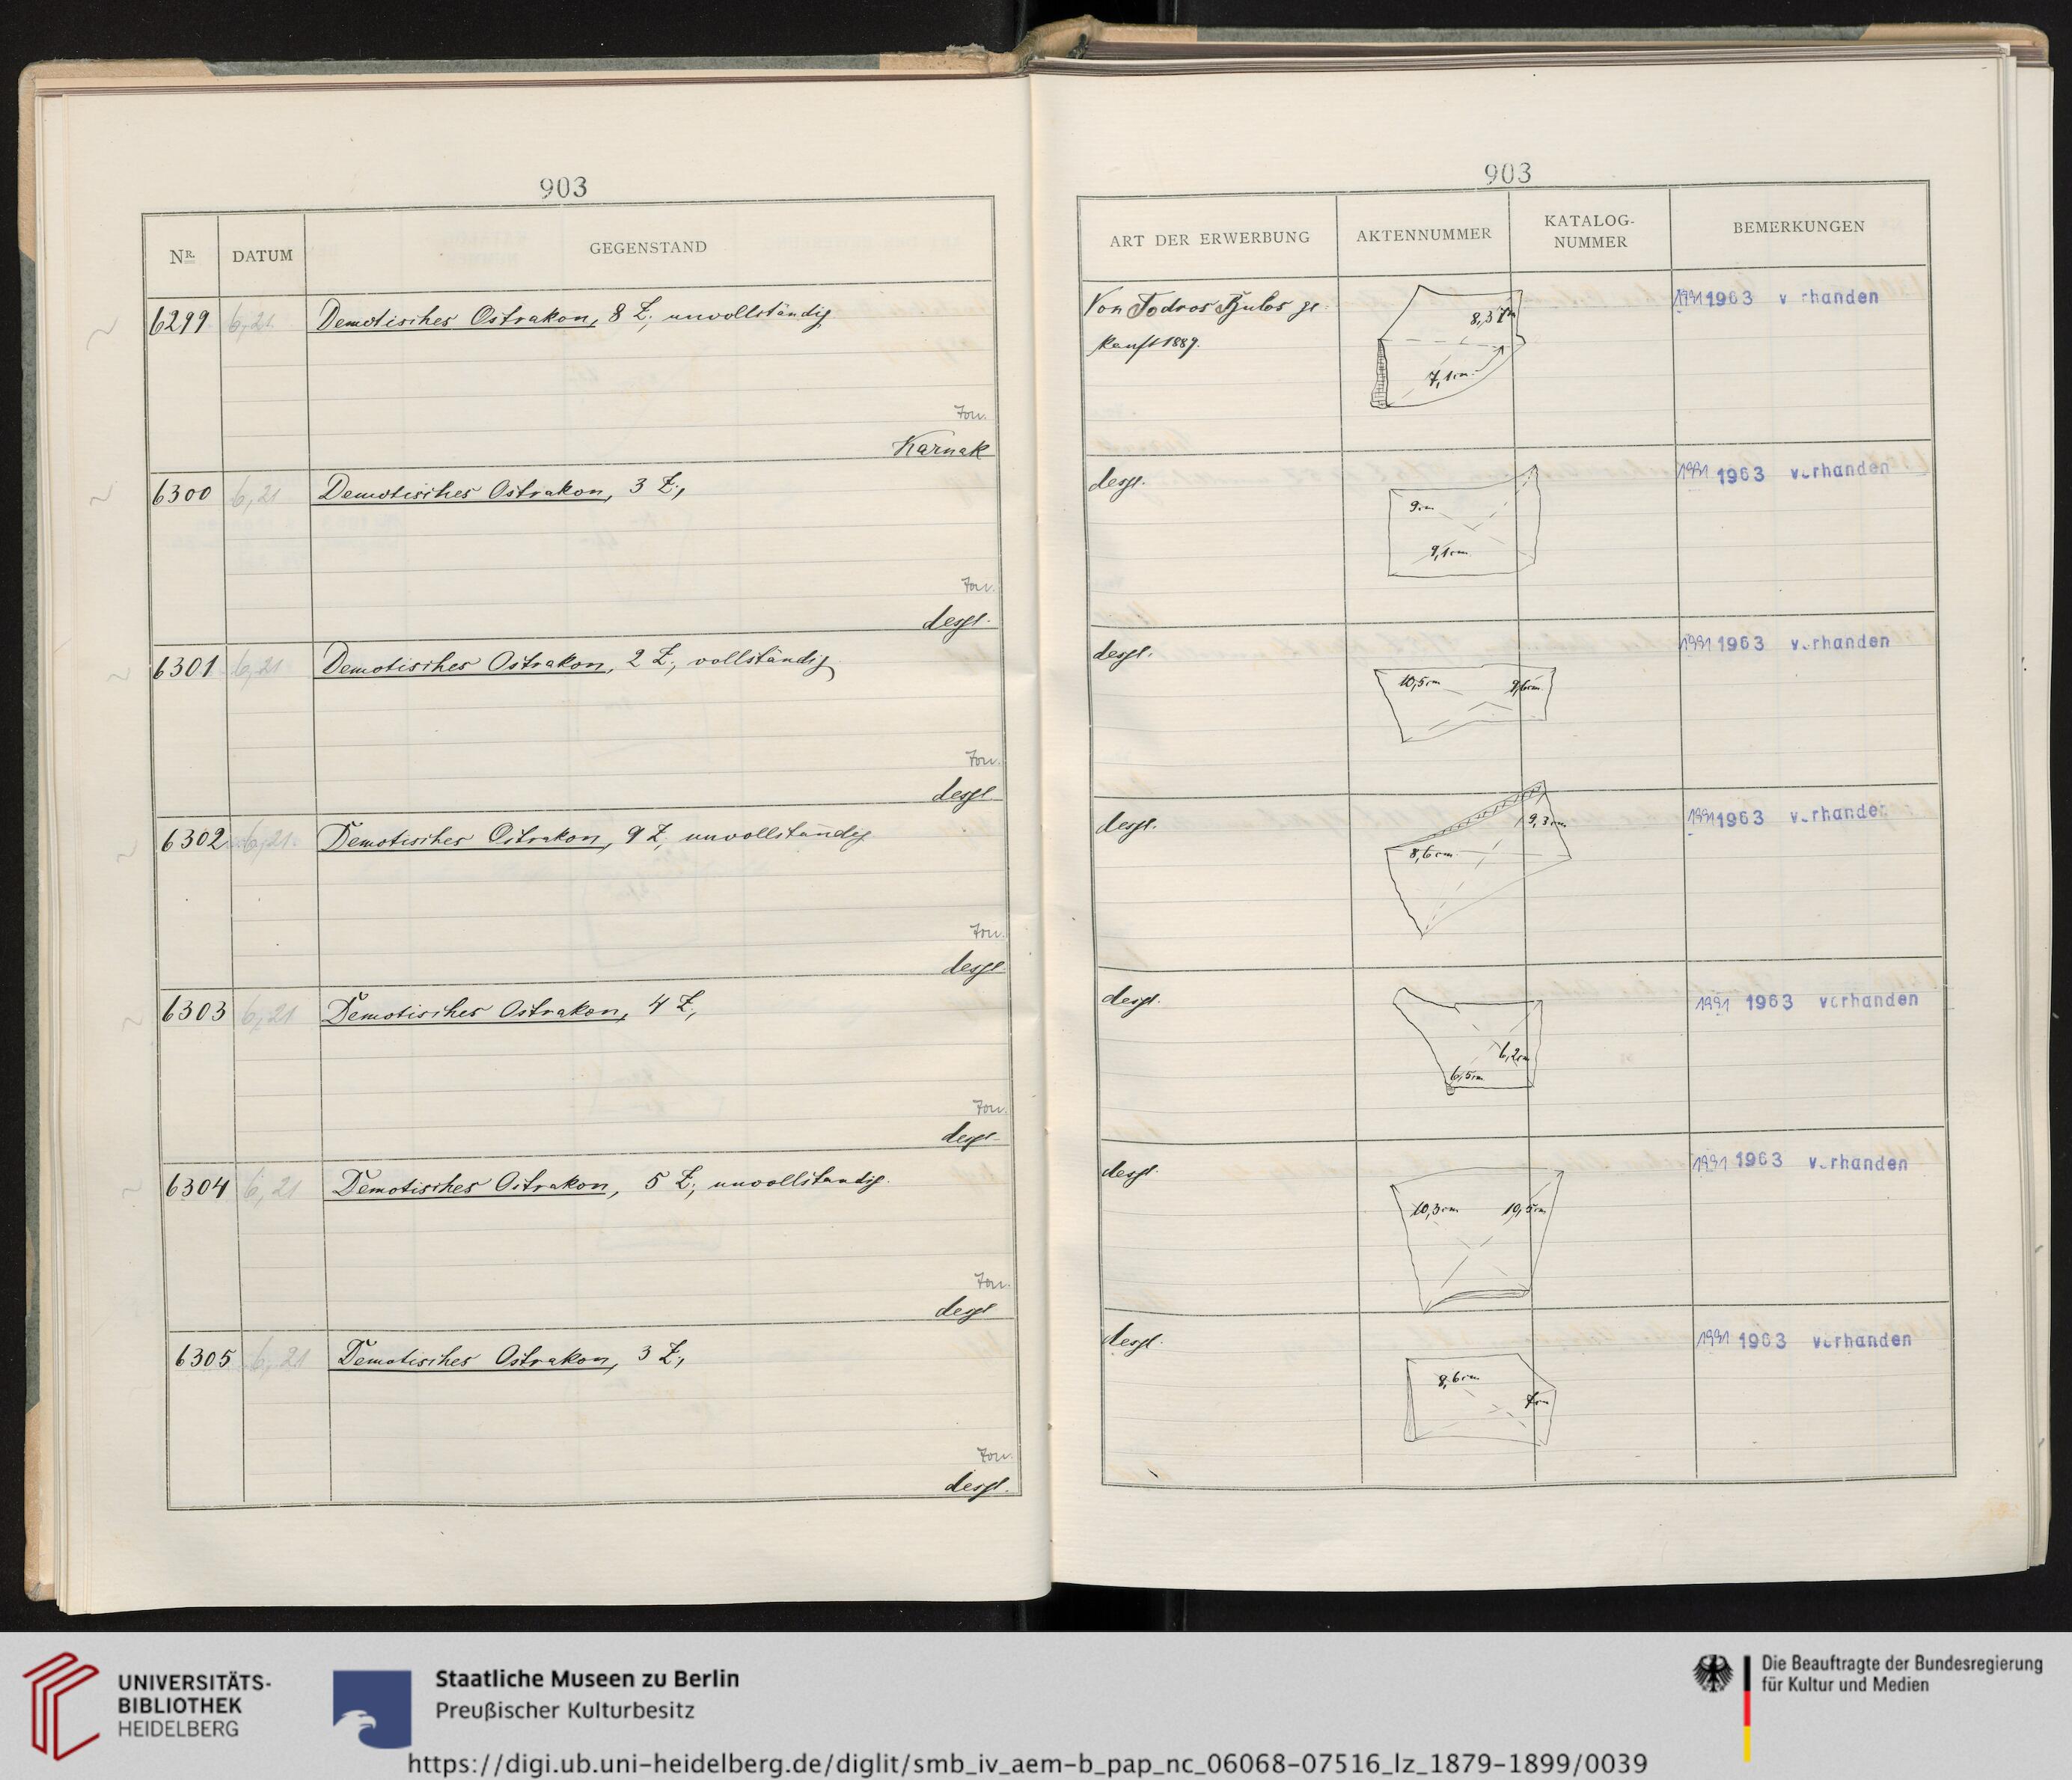 903
Nr. DATUM GEGENSTAND
6299 6,21. Demotisches Ostrakon, 8 Z., unvollständig
Ton.
Karnak
6300 6,21 Demotisches Ostrakon, 3 Z.,
Ton.
desgl.
6301 6,21 Demotisches Ostrakon, 2 Z., vollständig
Ton.
desgl.
6302 6,21. Demotisches Ostrakon, 9 Z., unvollständig
Ton.
desgl.
6303 6,21 Demotisches Ostrakon, 4 Z.,
Ton.
desgl.
6304 6,21 Demotisches Ostrakon, 5 Z., unvollständig.
Ton.
desgl.
6305 6,21 Demotisches Ostrakon, 3 Z.,
Ton.
desgl.
903
ART DER ERWERBUNG AKTENNUMMER KATALOG-NUMMER BEMERKUNGEN
Von Todros Bulos ge- 1991 1963 vorhanden
kauft 1889.
7,1cm
desgl. 1991 1963 vorhanden
9cm
9,1cm
desgl. 1991 1963 vorhanden
10,5cm 9,6cm
desgl. 1991 1963 vorhanden
9,3cm
8,6cm
desgl. 1991 1963 vorhanden
6,2cm
6,5cm
desgl. 1991 1963 vorhanden
10,3cm 10,5cm
desgl. 1991 1963 vorhanden
8,6cm
7cm
UNIVERSITÄTS-
BIBLIOTHEK
HEIDELBERG
Staatliche Museen zu Berlin
Preußischer Kulturbesitz
Die Beauftragte der Bundesregierung
für Kultur und Medien
https://digi.ub.uni-heidelberg.de/diglit/smb_iv_aem-b_pap_nc_06068-07516_lz_1879-1899/0039